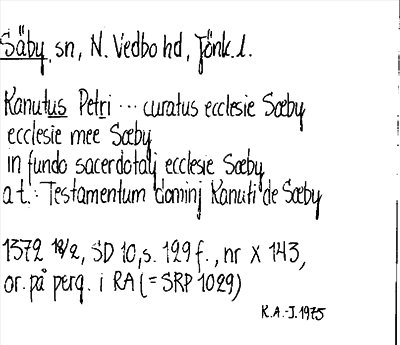 Säby, sn, N. Vedbo hd, Jönk. l.
Kanutus Petri ··· curatus ecclesie Sæby
ecclesie mee Sæby
in fundo sacerdotalj ecclesie Sæby
a t.: Testamentum dominj Kanuti de Sæby
1372 18/2, SD 10, s. 129 f., nr X 143,
or. på perg. i RA (= SRP 1029)
R.A.-J. 1975